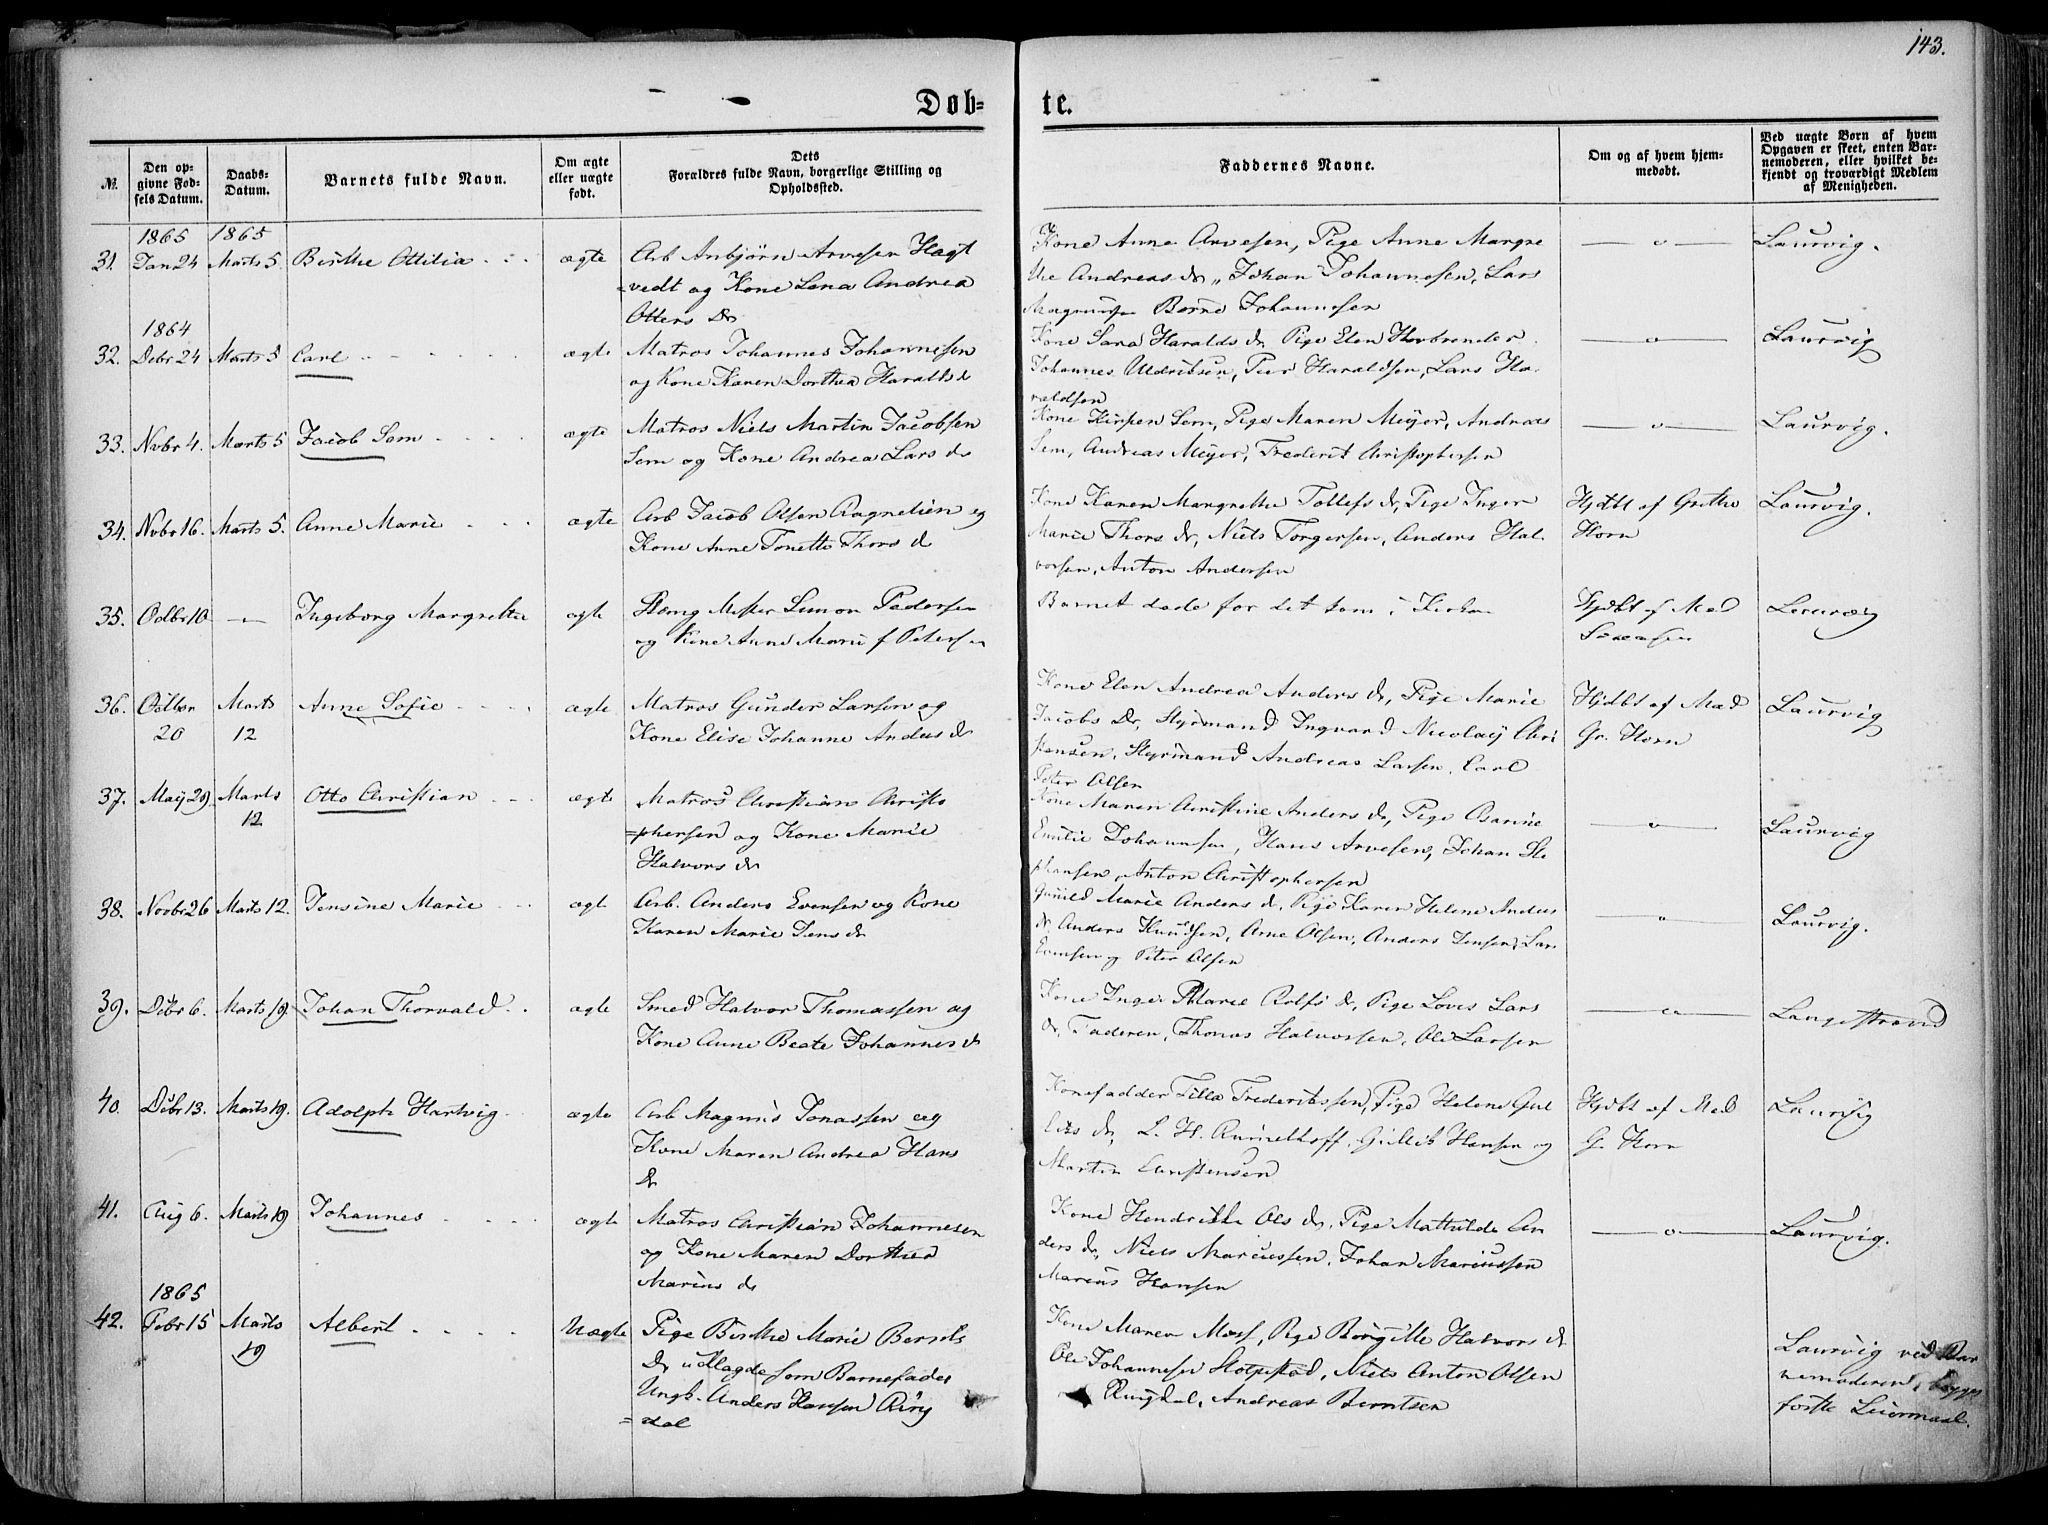 143.
Døb-
te.
№.
Den op-
givne Fød-
sels Datum.
Daabs-
Datum.
Barnets fulde Navn.
Om ægte
eller uægte
født.
Dets
Forældres fulde Navn, borgerlige Stilling og
Opholdssted.
Faddernes Navne.
Om og af hvem hjem-
medøbt.
Ved uægte Børn af hvem
Opgaven er skeet, enten Bar-
nemoderen, eller hvilket be-
kjendt og troværdigt Medlem
af Menigheden.
1865 1865
31. Jan 24 Marts 5 Birthe Ottilia ægte
Arb Anbjørn Arvesen Hægt
=vedt og Kone Lena Andrea
Otters Dr
Kone Anne Arvesen, Pige Anne Margre
the Andreas dr, Johan Johannesen, Lars
Magnusen Børre Johannesen
Laurvig.
1864
32. Debr 24 Marts 5 Carl ægte
Matros Johannes Johannesen
og Kone Karen Dorthea Haralds d
Kone Sara Haralds dr, Pige Elen
Johannes Uldriksen, Peer Haraldsen, Lars Ha-
raldsen
Laurvig
33. Nvbr 4. Marts 5 Jacob Sem ægte
Matros Niels Martin Jacobsen
Sem og Kone Andrea Lars d
Kone Kirsten Sem, Pige Maren Meyer, Andreas
Sem, Andreas Meyer, Frederik Christophersen
Laurvig.
34. Nvbr 16. Marts 5. Anne Marie ægte
Arb Jacob Olsen Rognelien og
Kone Anne Tonette Thors d
Kone Karen Margrethe Tollefs dr, Pige Inger
Marie Thors dr, Niels Torgersen, Anders Hal-
vorsen, Anton Andersen
Hjdbt af Grethe
Horn
Laurvig.
35. Octbr 10 Ingeborg Margrethe ægte
Mester Simon Pedersen
og Kone Anne Marie f Petersen
Barnet døde før det kom i Kirken
Hjdbt af Mad
Sørensen
Laurvig
36. Octbr
20
Marts
12
Anne Sofie ægte
Matros Gunder Larsen og
Kone Elise Johanne Anders d
Kone Elen Andrea Anders dr, Pige Marie
Jacobs Dr, Styrmand Ingvard Nicolay Chri
stensen, Styrmand Andreas Larsen, Carl
Peter Olsen
Hjdbt af Mad
Gr. Horn
Laurvig
37. May 29. Marts
12
Otto Christian ægte
Matros Christian Christo
=phersen og Kone Marie
Halvors dr
Kone Maren Christine Anders dr, Pige Osarine
Emilie Johannesen, Hans Arvesen, Johan Ste
phansen, Anton Christophersen
Laurvig
38. Novbr 26 Marts 12. Jensine Marie ægt
Arb. Anders Evensen og Kone
Karen Marie Jens dr
Gunild Marie Anders d, Pige Karen Helene Anders
dr, Anders Knudsen, Arne Olsen, Anders Jensen, Lars
Evensen og Peter Olsen
Laurvig.
39. Debr 6. Marts 19. Johan Thorvald ægte
Smed Halvor Thomassen og
Kone Anne Beate Johannes d
Kone Inger Marie Rolfs dr, Pige Lovis Lars
dr, Faderen, Thomas Halvorsen, Ole Larsen
Langestrand
40. Debr 13. Marts 19. Adolph Hartvig ægte
Arb Magnus Jonassen og
Kone Maren Andrea Hans
Dr
Konefadder Tilla Frederiksen, Pige Helene Gul
liks dr, L. H. Rummelhoff, Gullik Hansen og
Martin Christensen
Hjdbt af Mad
G. Horn
Laurvig
41. Aug 6. Marts 19 Johannes ægte
Matros Christian Johannesen
og Kone Maren Dorthea
Marius d
Kone Hendrikke Ols dr, Pige Mathilde An
ders dr, Niels Marcussen, Johan Mariussen
Marius Hansen
Laurvig.
1865
42. Febr 15 Marts
19
Albert Uægte
Pige Birthe Marie Bernts
Dr udlagde som Barnefader
Ungk. Anders Hansen Ring
=dal
Kone Maren Moss, Pige Børgitte Halvors d
Ole Johannesen Holpestad, Niels Anton Olsen
Ringdal, Andreas Berntsen
Laurvig ved Bar
nemoderen, begges
første Leiermaal.